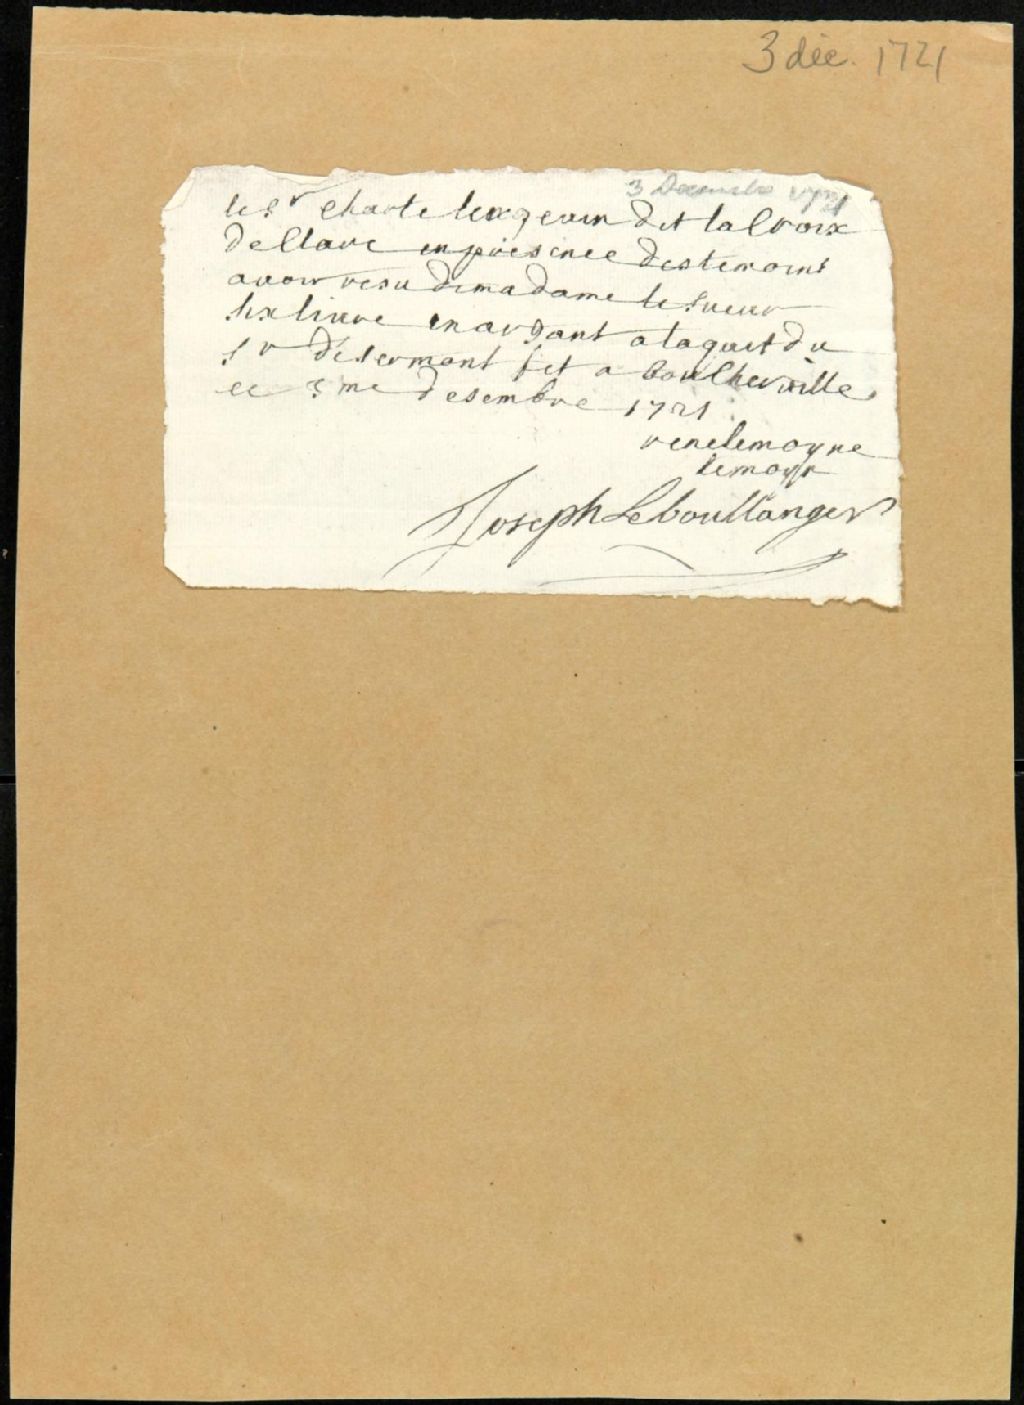 3 déc. 1721
3 Decembre 1721
le Sr Charle lengevin dit la Croix
dellare en presence des temoins
avoir resu de madame le sueur
six livre en argant a laquit du
Sr desermont fet a boucherville
ce 3me desembre 1721
rene lemoyne
lemoyn
Joseph Leboullanger